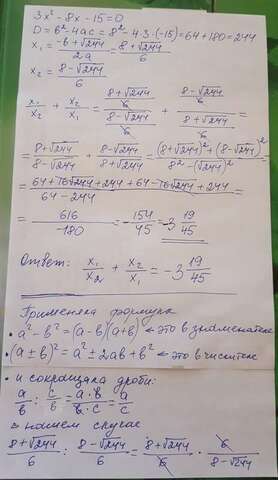 3x² - 8x - 15 = 0
D = b² - 4ac = 8² - 4·3·(-15) = 64 + 180 = 244
x₁ = (-b + √244)/2a = (8 + √244)/6
x₂ = (8 - √244)/6
x₁/x₂ + x₂/x₁ = ((8 + √244)/6)/((8 - √244)/6) + ((8 - √244)/6)/((8 + √244)/6) =
= (8 + √244)/(8 - √244) + (8 - √244)/(8 + √244) = ((8 + √244)² + (8 - √244)²)/(8² - (√244)²) =
= (64 + 16√244 + 244 + 64 - 16√244 + 244)/(64 - 244) =
= 616/-180 = -154/45 = -3 19/45
Ответ: x₁/x₂ + x₂/x₁ = -3 19/45
Применяла формулы
• a² - b² = (a - b)(a + b) ← это в знаменателе
• (a ± b)² = a² ± 2ab + b² ← это в числителе
• и сокращала дроби:
a/b : c/b = a·b/b·c = a/c
в нашем случае
(8 + √244)/6 : (8 - √244)/6 = (8 + √244)/6 · 6/(8 - √244)